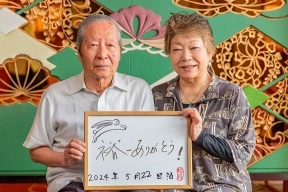 裕一ありがとう!
2024年5月22日㊗